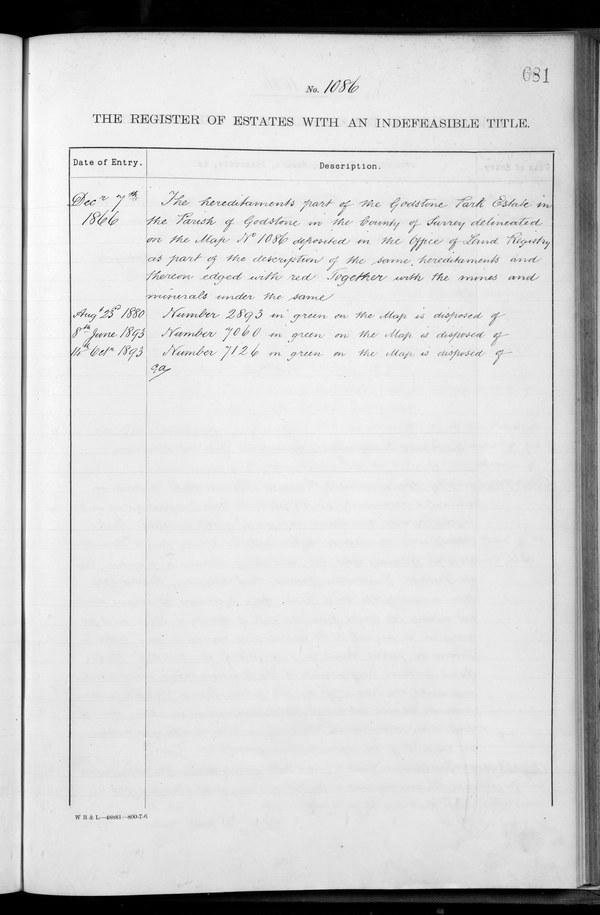 681
No. 1086
THE REGISTER OF ESTATES WITH AN INDEFEASIBLE TITLE.
Date of Entry. Description.
Decr 7th 1866 The hereditaments part of the Godstone Park Estate in
the Parish of Godstone in the County of Surrey delineated
on the Map No 1086 deposited in the Office of Land Registry
as part of the description of the same hereditaments and
thereon edged with red Together with the mines and
minerals under the same
Augt 23d 1880 Number 2893 in green on the Map is disposed of
8th June 1893 Number 7060 in green on the Map is disposed of
14th Octr 1893 Number 7126 in green on the Map is disposed of
W B & L—46881—800-7-6